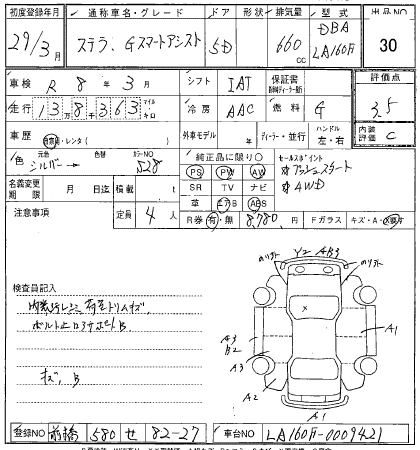 初度登録年月 通称車名・グレード ドア 形状 排気量 型式 出品NO
29/3月 ステラ. Gスマートアシスト 5D 660cc DBA LA160F 30
車検 R 8年 3月 シフト IAT 保証書 評価点
走行 13万8千363 マイル キロ 冷房 AAC 燃料 G 3.5
車歴 自家用・レンタ( ) 外車モデル 年 ディーラー・並行 ハンドル 左・右 内装評価 C
色 元色 シルバー 色替 カラーNO S28 純正品に限り○ セールスポイント
名義変更期限 月 日迄 積載 t PS PW AW プッシュスタート
SR TV ナビ 4WD
注意事項 定員 4人 革 エアB ABS
R券 有・無 8,780円 Fガラス キズ・A・X要す
検査員記入
内装汚レシミ 荷室トリムキズ.
ボルト止ロアサポートB
キズ. B
のりフト Y2 AB3 のりフト
A3 B2 X A1
A3
A2
A1
登録NO 前橋 580 せ 82-27 車台NO LA160F-0009421